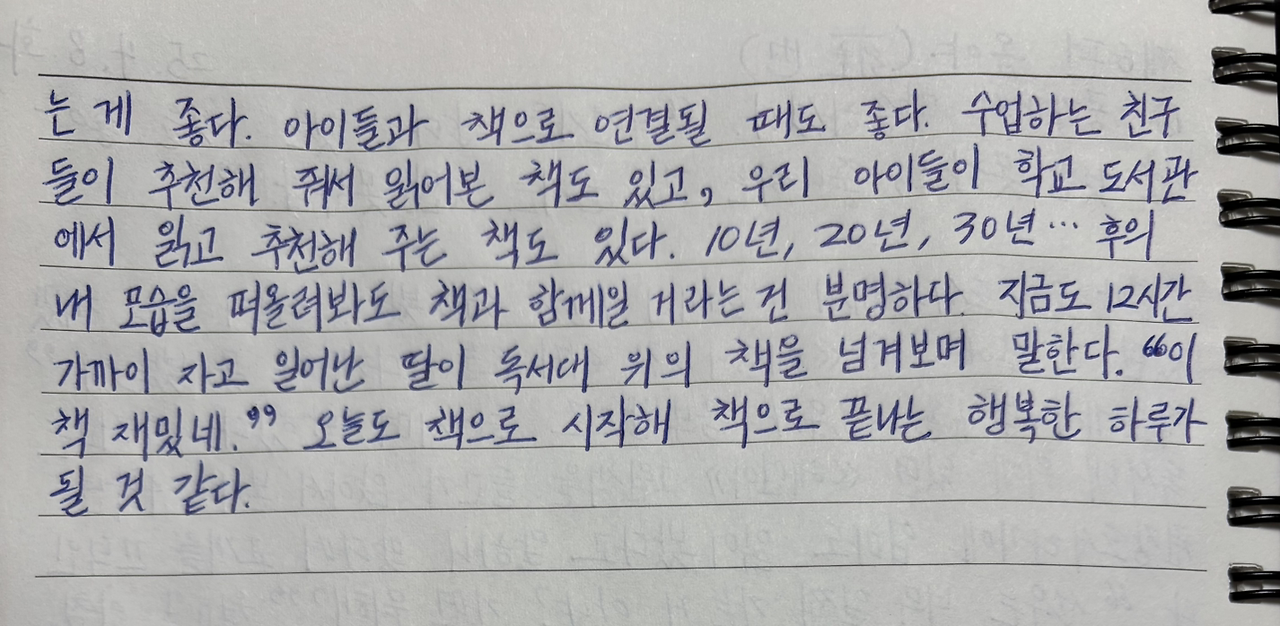 는 게 좋다. 아이들과 책으로 연결될 때도 좋다. 수업하는 친구
들이 추천해 줘서 읽어본 책도 있고, 우리 아이들이 학교 도서관
에서 읽고 추천해 주는 책도 있다. 10년, 20년, 30년… 후의
내 모습을 떠올려봐도 책과 함께일 거라는 건 분명하다. 지금도 12시간
가까이 자고 일어난 딸이 독서대 위의 책을 넘겨보며 말한다. “이
책 재밌네.” 오늘도 책으로 시작해 책으로 끝나는 행복한 하루가
될 것 같다.